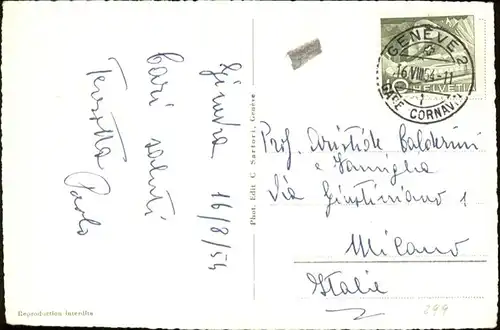 Ginevra 16/8/54
Cari saluti
Paolo
Phot. Edit C Sartori, Genève
GENÈVE 2
16.VIII.54-11
1
GARE CORNAVIN
HELVETIA
Prof. Aristide Calderini
e Famiglia
Via Giustiniano 1
Milano
Italie
299
Reproduction interdite